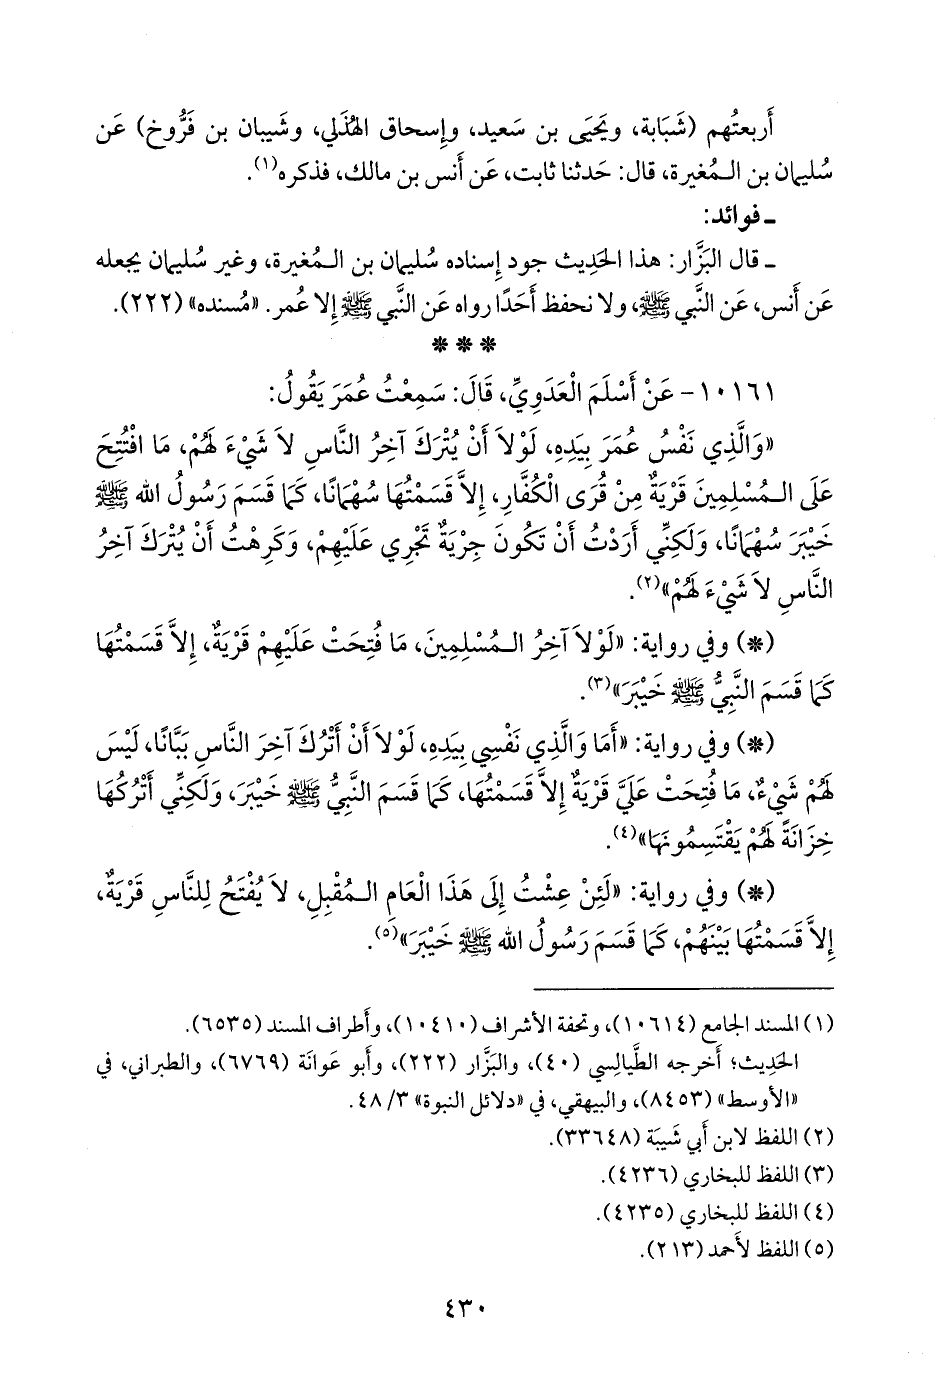 أَربعتُهم (شَبَابة، ويَحيَى بن سَعيد، وإِسحاق الهُذَلي، وشَيبان بن فَرُّوخ) عَن
سُليمان بن الـمُغيرة، قال: حَدثنا ثابت، عَن أَنس بن مالك، فذكره(١).
ـ فوائد:
ـ قال البَزَّار: هذا الحَدِيث جود إِسناده سُليمان بن الـمُغيرة، وغير سُليمان يجعله
عَن أَنس، عَن النَّبي ﷺ، ولا نحفظ أَحَدًا رواه عَن النَّبي ﷺ إِلا عُمر. «مُسنده» (٢٢٢).
* * *
١٠١٦١- عَنْ أَسْلَمَ الْعَدَوِيِّ، قَالَ: سَمِعْتُ عُمَرَ يَقُولُ:
«وَالَّذِي نَفْسُ عُمَرَ بِيَدِهِ، لَوْلاَ أَنْ يُتْرَكَ آخِرُ النَّاسِ لاَ شَيْءَ لَهُمْ، مَا افْتُتِحَ
عَلَى الـمُسْلِمِينَ قَرْيَةٌ مِنْ قُرَى الْكُفَّارِ، إِلاَّ قَسَمْتُهَا سُهْمَانًا، كَمَا قَسَمَ رَسُولُ الله ﷺ
خَيْبَرَ سُهْمَانًا، وَلَكِنِّي أَرَدْتُ أَنْ تَكُونَ جِرْيَةٌ تَجْرِي عَلَيْهِمْ، وَكَرِهْتُ أَنْ يُتْرَكَ آخِرُ
النَّاسِ لاَ شَيْءَ لَهُمْ»(٢).
(*) وفي رواية: «لَوْلاَ آخِرُ الـمُسْلِمِينَ، مَا فُتِحَتْ عَلَيْهِمْ قَرْيَةٌ، إِلاَّ قَسَمْتُهَا
كَمَا قَسَمَ النَّبِيُّ ﷺ خَيْبَرَ»(٣).
(*) وفي رواية: «أَمَا وَالَّذِي نَفْسِي بِيَدِهِ، لَوْلاَ أَنْ أَتْرُكَ آخِرَ النَّاسِ بَبَّانًا، لَيْسَ
لَهُمْ شَيْءٌ، مَا فُتِحَتْ عَلَيَّ قَرْيَةٌ إِلاَّ قَسَمْتُهَا، كَمَا قَسَمَ النَّبِيُّ ﷺ خَيْبَرَ، وَلَكِنِّي أَتْرُكُهَا
خِزَانَةً لَهُمْ يَقْتَسِمُونَهَا»(٤).
(*) وفي رواية: «لَئِنْ عِشْتُ إِلَى هَذَا الْعَامِ الـمُقْبِلِ، لاَ يُفْتَحُ لِلنَّاسِ قَرْيَةٌ،
إِلاَّ قَسَمْتُهَا بَيْنَهُمْ، كَمَا قَسَمَ رَسُولُ الله ﷺ خَيْبَرَ»(٥).
(١) المسند الجامع (١٠٦١٤)، وتحفة الأشراف (١٠٤١٠)، وأَطراف المسند (٦٥٣٥).
الحَدِيث؛ أَخرجه الطَّيالِسي (٤٠)، والبَزَّار (٢٢٢)، وأَبو عَوانَة (٦٧٦٩)، والطبراني، في
«الأَوسط» (٨٤٥٣)، والبيهقي، في «دلائل النبوة» ٣/ ٤٨.
(٢) اللفظ لابن أَبي شَيبَة (٣٣٦٤٨).
(٣) اللفظ للبخاري (٤٢٣٦).
(٤) اللفظ للبخاري (٤٢٣٥).
(٥) اللفظ لأَحمد (٢١٣).
٤٣٠